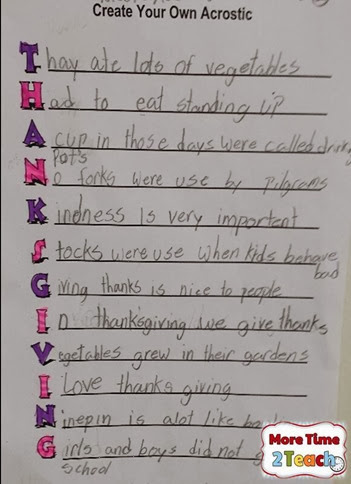 Create Your Own Acrostic
Thay ate lots of vegetables
Had to eat standing up
A cup in those days were called drink
pot's
No forks were use by pilgrams
Kindness is very importent
Stocks were use when kids behave
bad
Giving thanks is nice to people
In thanksgiving we give thanks
Vegetables grew in their gardens
I Love thanks giving
Ninepin is alot like
Girls and boys did not
school
More Time
2Teach